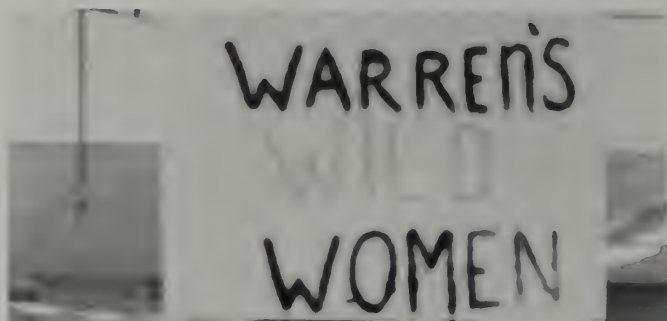 WARREN'S
WILD
WOMEN